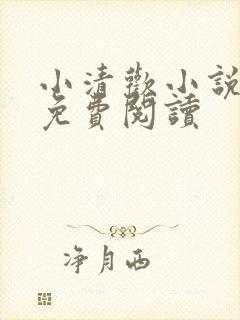 小清歡小説
免費閱讀
净月西